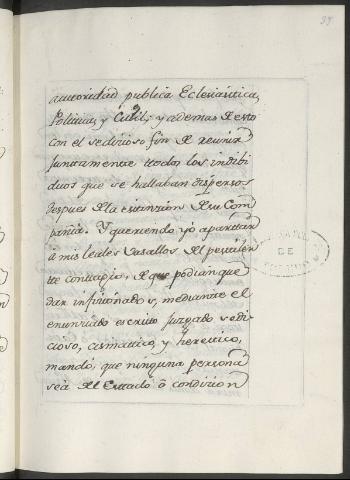 99
autoridad publica Eclesiastica,
Politica, y Cibil; y ademas de esto
con el sedicioso fin de reunir
juntamente todos los indibi
duos que se hallaban dispersos
despues de la extincion de su Com
pañia. Y queriendo yo apartar
á mis leales Vasallos del pestilen
te contagio, de que podian que
dar inficionados, mediante el
enunciado escrito Juzgado sedi
cioso, cismatico, y heretico,
mandó, que ninguna persona
sea del Estado ó condicion
DE